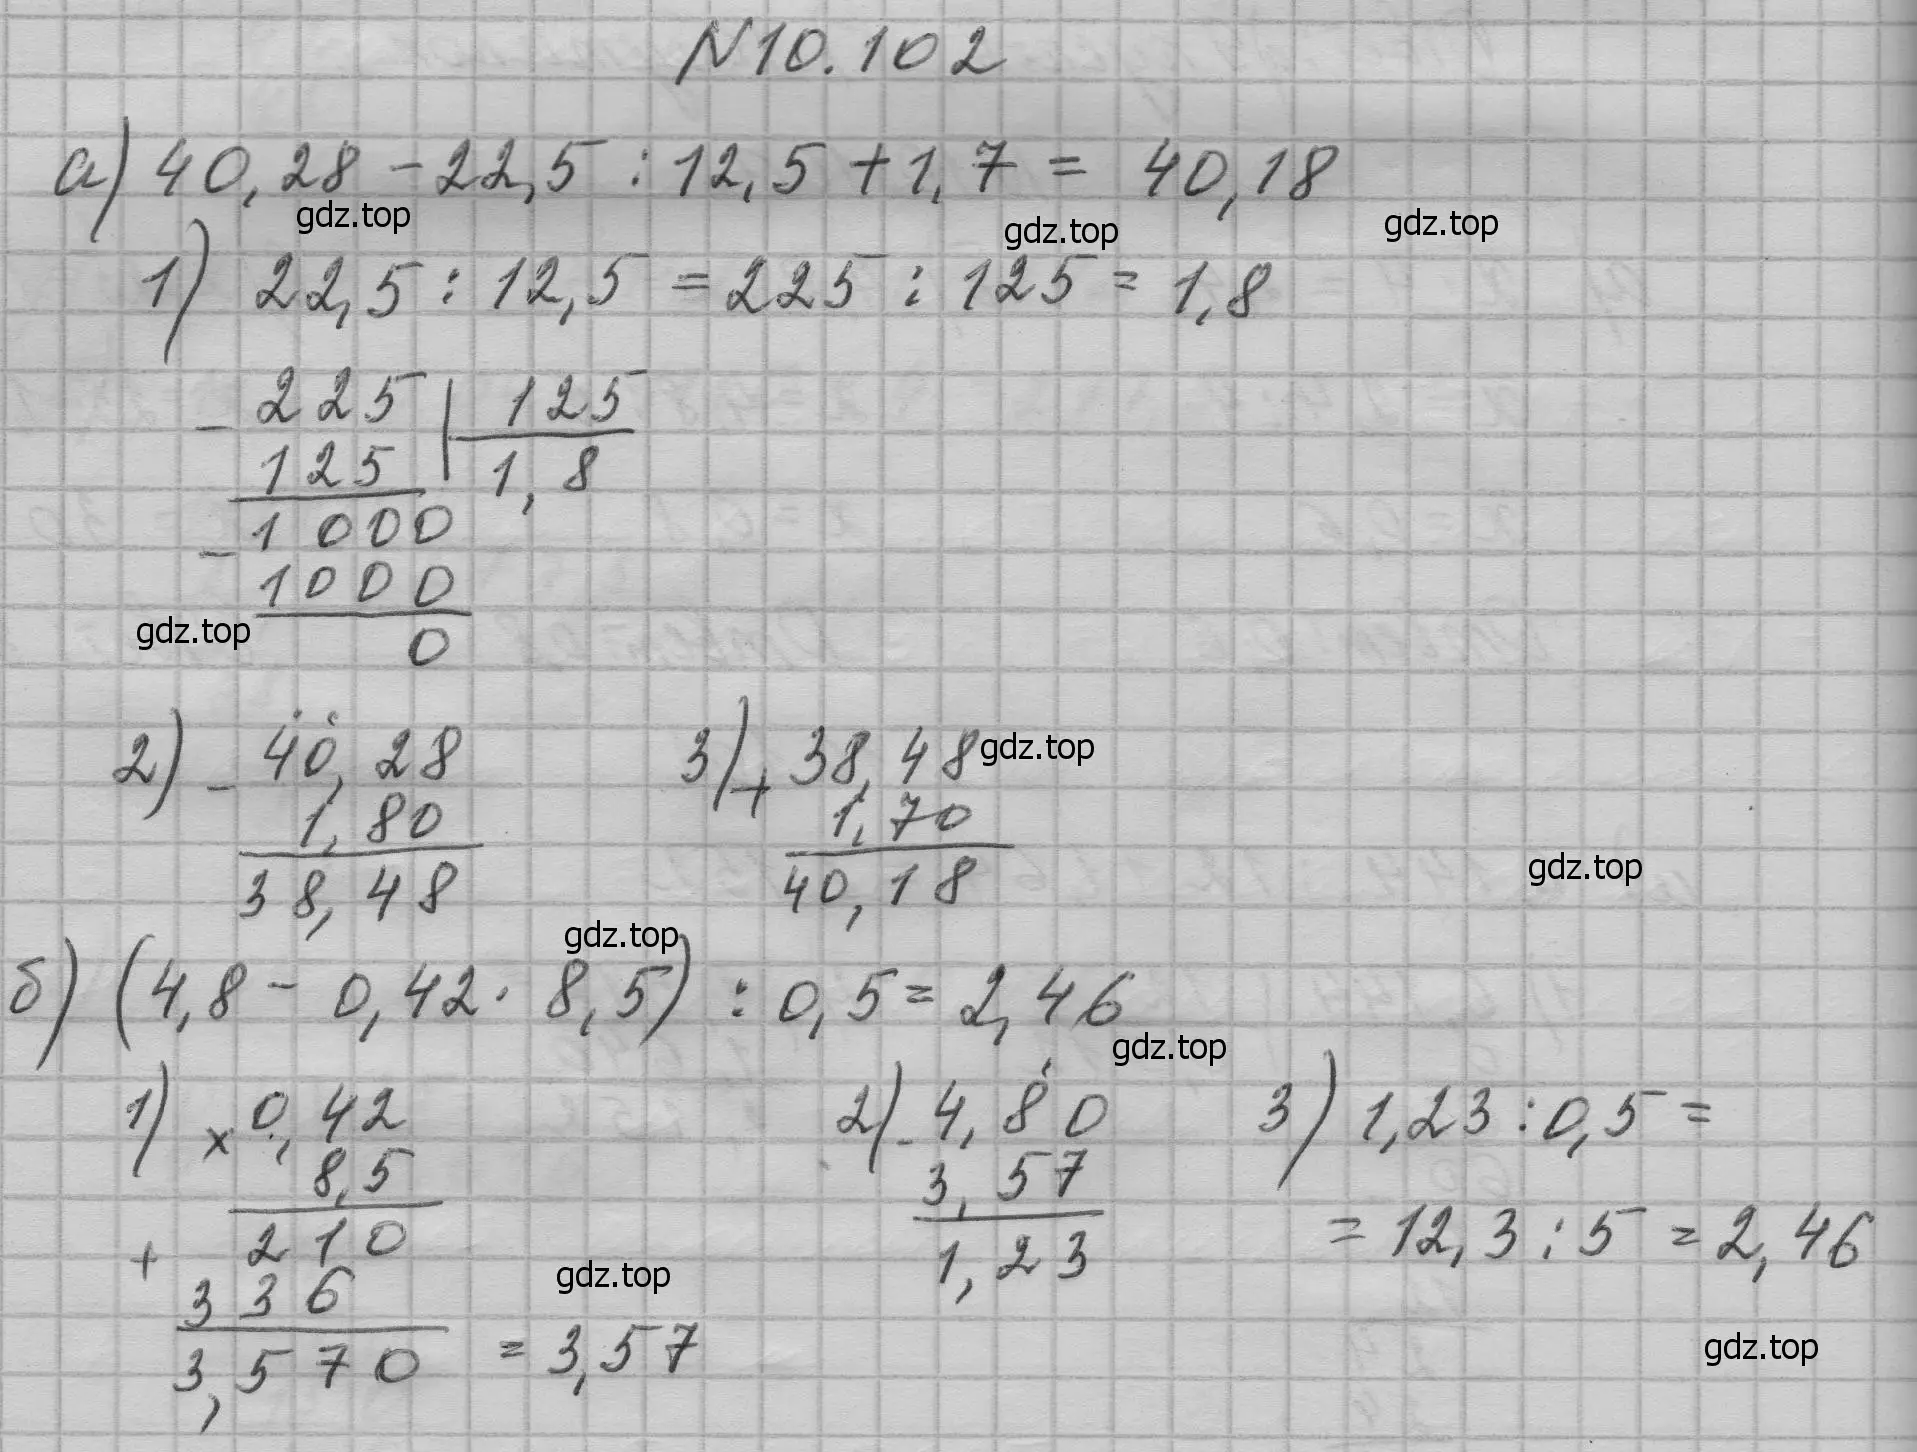 N10.102
а) 40,28 - 22,5 : 12,5 + 1,7 = 40,18
gdz.top gdz.top gdz.top
1) 22,5 : 12,5 = 225 : 125 = 1,8
- 225 | 125
125 | 1,8
- 1000
1000
gdz.top
0
2) - 40,28 3) + 38,48 gdz.top
1,80 1,70
38,48 40,18
gdz.top
gdz.top
б) (4,8 - 0,42 · 8,5) : 0,5 = 2,46
gdz.top
1) × 0,42 2) - 4,80 3) 1,23 : 0,5 =
8,5 3,57
210 1,23 = 12,3 : 5 = 2,46
+ 336
gdz.top
3,570 = 3,57
gdz.top